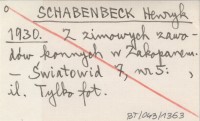 SCHABENBECK Henryk
1930. Z zimowych zawo-
dów konnych w Zakopanem.
— Światowid 7, nr 5: ,
il. Tylko fot.
BT/043/1363